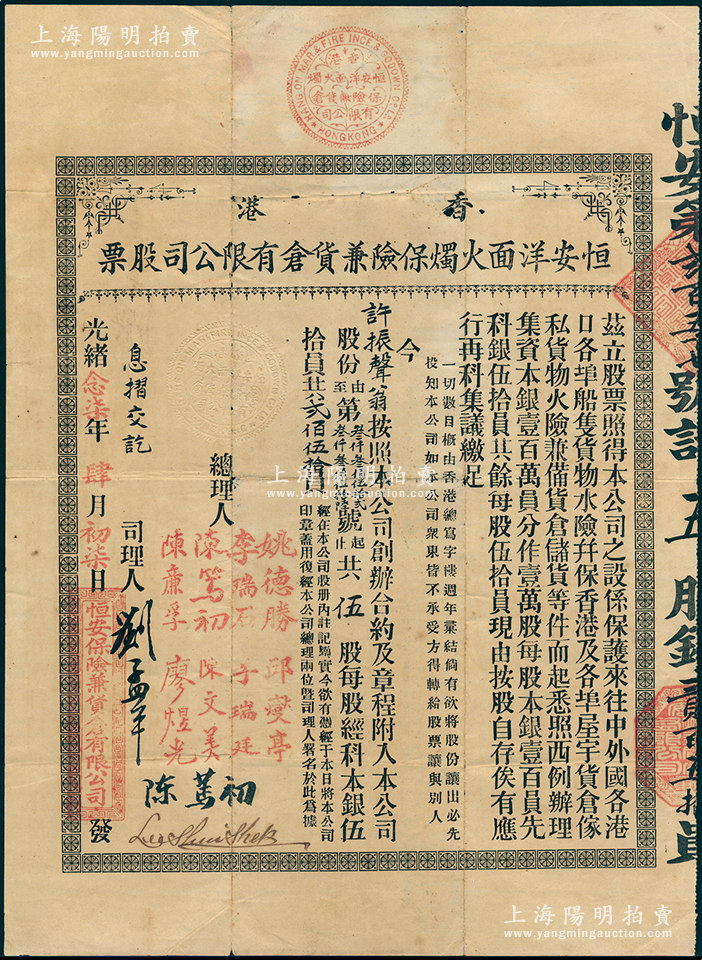 上海陽明拍賣
www.yangmingauction.com
上海陽明拍賣
www.yangmingauction.com
HANG ON MAR. & FIRE INCE & GODOWN Co LD
HONGKONG
香港
恒安洋面火燭
保險兼貨倉
有限公司
香港
恒安洋面火燭保險兼貨倉有限公司股票
茲立股票照得本公司之設係保護來往中外國各港
口各埠船隻貨物水險幷保香港及各埠屋宇貨倉傢
私貨物火險兼備貨倉儲貨等件而起悉照西例辦理
集資本銀壹百萬員分作壹萬股每股本銀壹百員先
科銀伍拾員其餘每股伍拾員現由按股自存俟有應
行再科集議繳足
一切數目概由香港總寫字樓週年彙結倘有欲將股份讓出必先
投知本公司如本公司衆東皆不承受方得轉給股票讓與別人
今
許振聲翁按照本公司創辦合約及章程附入本公司
股份由第叁仟叁佰號起至止共伍股每股經科本銀伍
拾員共貳佰伍拾員
經在本公司股册內註記騐實今欲有憑經于本日將本公司
印章蓋用復經本公司總理兩位暨司理人署名於此爲據
總理人
姚德勝 邱燮亭
李瑞石 于瑞廷
陳篤初 陳文美
陳鼐孚 廖煜光
陳篤初
Lee Shui Shek
司理人
劉孟平
息摺交訖
光緒念柒年肆月初柒日
恒安保險兼貨倉有限公司
發
恒安第 號計五股銀貳百五拾員
上海陽明拍賣
www.yangmingauction.com
上海陽明拍賣
www.yangmingauction.com